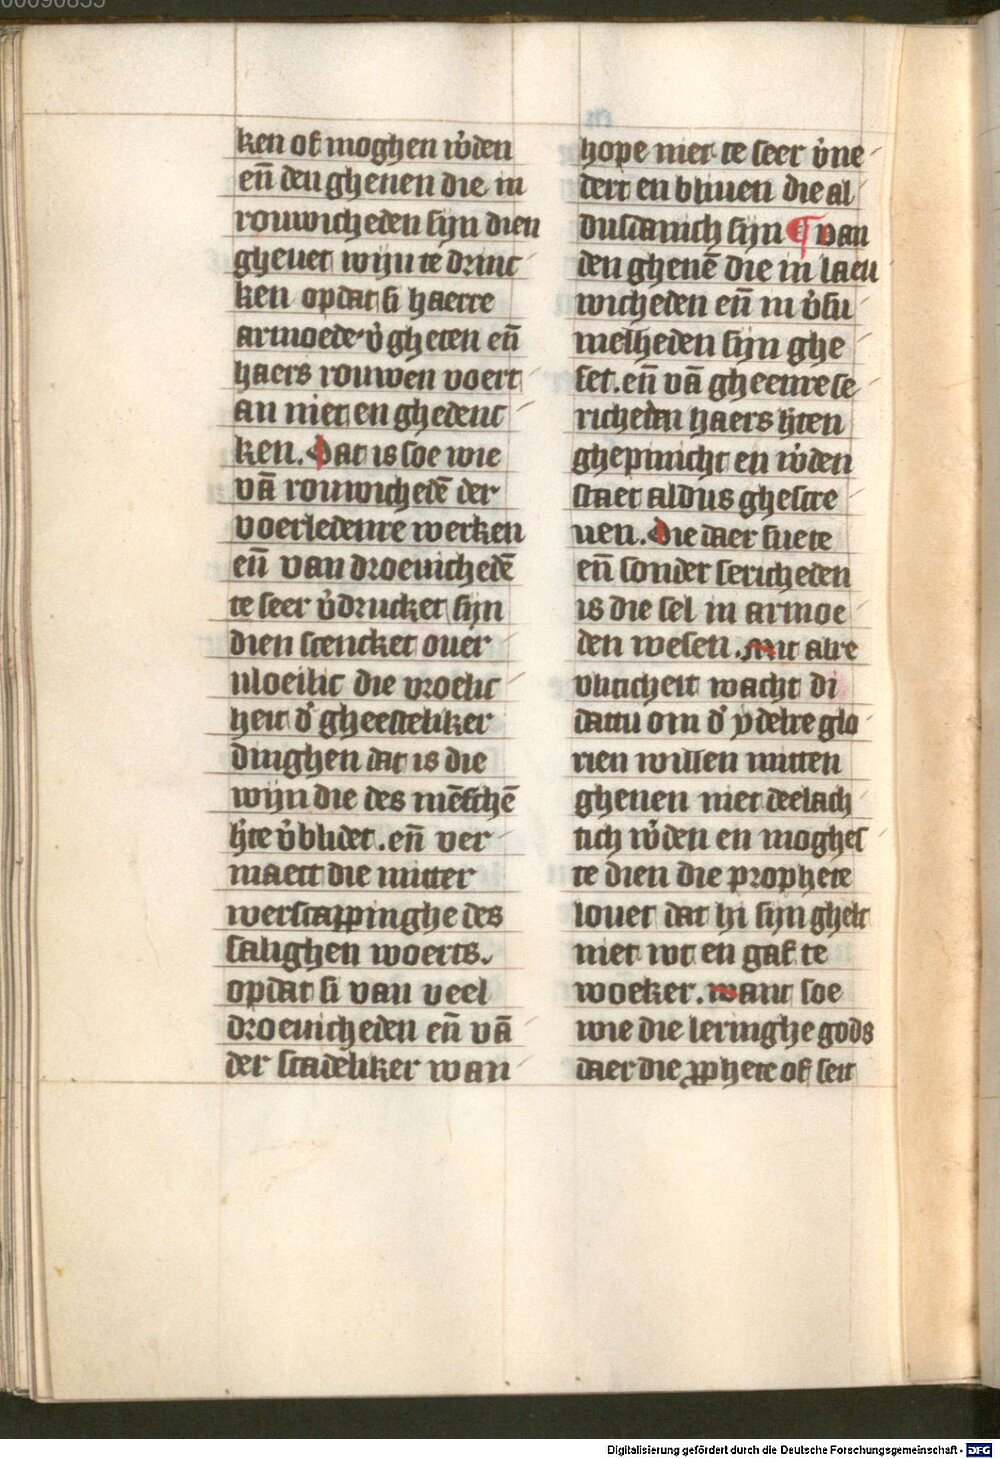 00090835
ken of moghen w̓den
en̄ den ghenen die in
rouwicheden sijn dien
gheuet wijn te drinc
ken opdat si haerre
armoede v̓gheten en̄
haers rouwen voert
an niet en ghedenc
ken. Dat is soe wie
vā rouwichedē der
voerledenre werken
en̄ van droeuichedē
te seer v̓drucket sijn
dien scencket ouer
uloeilic die vroelic
heit d̓ gheesteliker
dinghen dat is die
wijn die des mēschē
h̓te v̓blidet. en̄ ver
maect die mitter
werscappinghe des
salighen woerts.
opdat si van veel
droeuicheden en̄ vā
der scadeliker wan
hope niet te seer v̓ne
dert en bliuen die al
dusdanich sijn ¶ van
den ghenē die in laeu
wicheden en̄ in v̓su
melheden sijn ghe
set. en̄ vā gheenre se
richeden haers h̓ten
ghepinicht en w̓den
staet aldus ghescre
uen. Die daer suete
en̄ sonder sericheden
is die sel in armoe
den wesen. Mit alre
vliticheit wacht di
dattu om d̓ ydelre glo
rien willen mitten
ghenen niet deelach
tich w̓den en moghes
te dien die prophete
louet dat hi sijn ghelt
niet wt en gaf te
woeker. want soe
wie die leringhe gods
daer die ꝓphete of seit
Digitalisierung gefördert durch die Deutsche Forschungsgemeinschaft - DFG